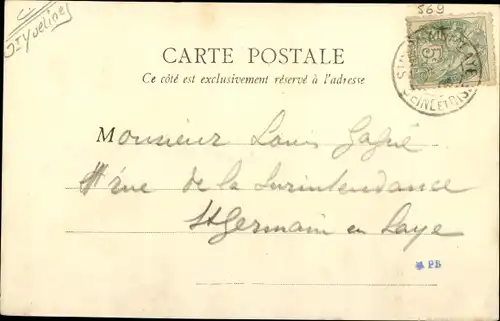 569
St Yveline
5
SEINE-ET-OISE
CARTE POSTALE
Ce côté est exclusivement réservé à l'adresse
Monsieur Louis Gagné
rue de la Surintendance
St Germain en Laye
PB